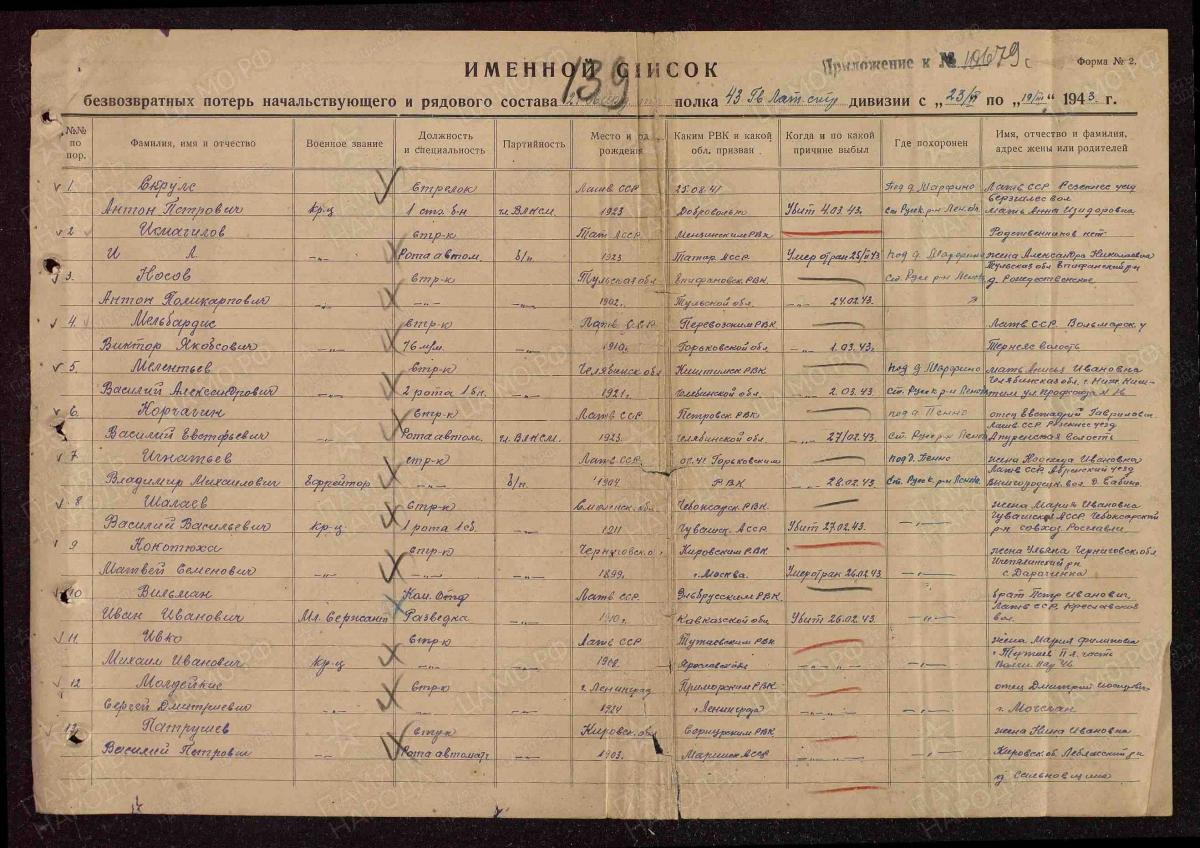 Приложение к № 10679с
Форма № 2.
ИМЕННОЙ СПИСОК
139
безвозвратных потерь начальствующего и рядового состава полка 43 Гв Лат. стр дивизии с „23/II по „19/III“ 1943 г.
№№ по пор. Фамилия, имя и отчество Военное звание Должность и специальность Партийность Место и год рождения Каким РВК и какой обл. призван Когда и по какой причине выбыл Где похоронен Имя, отчество и фамилия, адрес жены или родителей
1. Скрулс Стрелок Латв ССР 25.08.41 Под д. Марфино Латв ССР Резекнес уезд
Берзгалес вол
Антон Петрович кр-ц 1 стр. б-н чл. ВЛКСМ. 1923 Добровольно Убит 4.03.43. Ст. Русск. р-н Лен. обл. мать Анна Изидоровна
2 Исмагилов стр-к Тат АССР Мензинским РВК Родственников нет
И А. -„- Рота автом. б/п. 1923 Татар АССР Умер от ран 25/II 43 под д. Марфино жена Александра Николаевна
3. Носов стр-к Тульская обл Епифановск. РВК Ст. Русск р-н Ленобл Тульская обл Епифанский р-н
д. Рождественское
Антон Поликарпович -„- -„- -„- 1902. Тульской обл. -„- 24.02.43. -„-
4. Мельбардис стр-к Латв ССР Перевозским РВК Латв ССР Вольмарск. у
Виктор Якобсович -„- 76 м/м. -„- 1910г. Горьковской обл -„- 1.03.43. Тернеяс волость
5. Мелентьев стр-к Челябинск обл Кыштымск РВК под д Марфино мать Анисья Ивановна
Челябинская обл. г. Ниж. Кыш-
Василий Александрович -„- 2 рота 1 бн. -„- 1921г. Челябинской обл. -„- 2.03.43 Ст. Русск р-н Ленобл тым ул. Профсоюза № 16
6. Корчагин стр-к Латв ССР Петровск. РВК под д. Пенно отец Евстафий Гаврилович
Латв ССР Резекнес уезд
Василий Евстафьевич -„- Рота автом. чл. ВЛКСМ. 1923. Челябинской обл. -„- 27/02.43. Ст. Русск р-н Ленобл волость
7 Игнатьев стр-к Латв ССР 08.41 Горьковским под д. Пенно жена Надежда Ивановна
Латв ССР. Абренский уезд
Владимир Михайлович Ефрейтор -„- б/п. 1904 РВК -„- 28.02.43. Ст. Русск р-н Ленобл. Вышгородск. вол. д. Бабино
8 Шалаев стр-к обл. Чебоксарск. РВК жена Мария Ивановна
Чувашск АССР Чебоксарский
Василий Васильевич кр-ц. 1 рота 1 сб. -„- 1911 Чувашск. АССР Убит 27.02.43. -„- р-н совхоз Рославли
9 Кокотюха стр-к Черниговск. о. Кировским РВК жена Ульяна Черниговск. обл
р-н
Матвей Семенович -„- -„- -„- 1899г. г. Москва. Умер от ран 26.02.43 -„- с.
10 Вильман Ком. Отд Латв ССР Эльбрусским РВК брат Петр Иванович
Латв ССР.
Иван Иванович Мл. Сержант Разведка -„- 1910г. Кавказской обл Убит 26.02.43. -„- вол.
11 Ивко стр-к Латв ССР Тутаевским РВК жена Мария Филиповна
г Тутаев П л. часть
Михаил Иванович кр-ц. -„- -„- 1908 Ярославской -„- -„- Волги
12 Молдейкис стр-к г. Ленинград Приморским РВК отец Дмитрий Иосифович
Сергей Дмитриевич -„- -„- -„- 1924 г Ленинграда -„- -„- г.
13 Патрушев стр-к Кировск. обл РВК жена Нина Ивановна
Василий Петрович Рота автомат. -„- 1903. Марийск АССР -„- -„- Кировск об Лебяжский р-н
д.